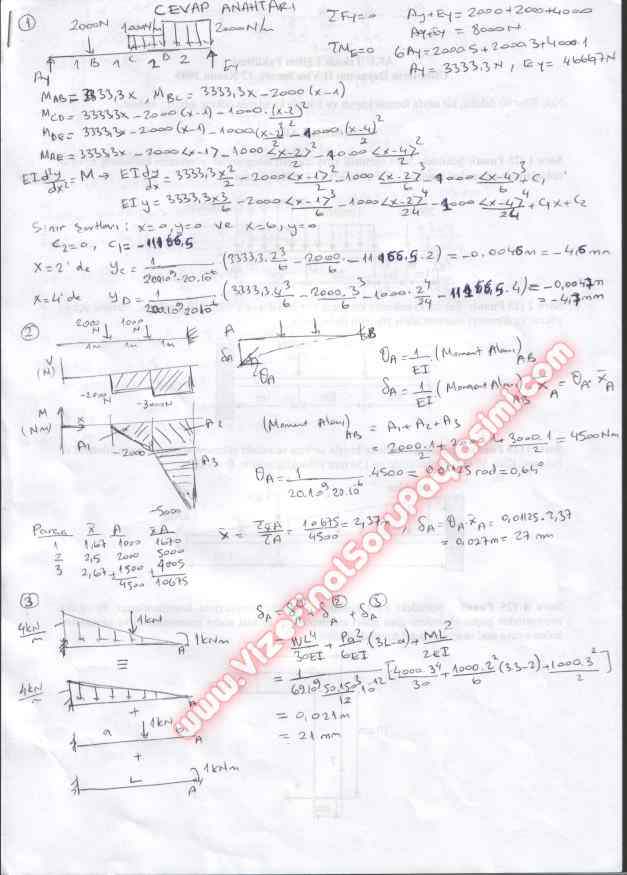 CEVAP ANAHTARI
①
2000N 1000N/m 2000N/m
Ay 1 B 1 C 2 D 2 Ey
ΣFy=0 Ay+Ey = 2000+2000+4000
Ay+Ey = 8000N
ΣME=0 6Ay = 2000.5+2000.3+4000.1
Ay = 3333,3N, Ey = 4666,7N
MAB = 3333,3x, MBC = 3333,3x - 2000(x-1)
MCD = 3333,3x - 2000(x-1) - 1000.(x-2)²/2
MDE = 3333,3x - 2000(x-1) - 1000(x-2)²/2 - 1000.(x-4)²/2
MAE = 3333,3x - 2000<x-1> - 1000<x-2>²/2 - 1000<x-4>²/2
EI d²y/dx² = M → EI dy/dx = 3333,3x²/2 - 2000<x-1>²/2 - 1000<x-2>³/6 - 1000<x-4>³/6 + C₁
EIy = 3333,3x³/6 - 2000<x-1>³/6 - 1000<x-2>⁴/24 - 1000<x-4>⁴/24 + C₁x + C₂
Sınır Şartları: x=0, y=0 ve x=6, y=0
C₂=0, C₁=-11166,5
x=2'de yC = 1/20.10⁹.20.10⁻⁶ (3333,3.2³/6 - 2000/6 - 11166,5.2) = -0,0046m = -4,6mm
x=4'de yD = 1/20.10⁹.20.10⁻⁶ (3333,3.4³/6 - 2000.3³/6 - 1000.2⁴/24 - 11166,5.4) = -0,0047m
= -4,7mm
②
2000N 1000N
1m 1m 1m
A B
δA
θA
V
(N)
-2000N
-3000N
M
(Nm)
x
A1
A2
A3
-2000
-5000
θA = 1/EI (Moment Alanı)AB
δA = 1/EI (Moment Alanı)AB x̄A = θA.x̄A
(Moment Alanı)AB = A₁+A₂+A₃
= 2000.1/2 + 2000.1 + 3000.1/2 = 4500Nm
θA = 1/20.10⁹.20.10⁻⁶ 4500 = 0,01125 rad = 0,64°
Parça x̄ A x̄A
1 1,67 1000 1670
2 2,5 2000 5000
3 2,67 1500 4005
4500 10675
x̄ = Σx̄A/ΣA = 10675/4500 = 2,37m, δA = θA.x̄A = 0,01125.2,37
= 0,027m = 27mm
③
4kN/m 1kN 1kNm
A
≡
4kN/m
A
+
1kN
a A
+
1kNm
L A
δA = δA① + δA② + δA③
= WL⁴/30EI + Pa²/6EI (3L-a) + ML²/2EI
= 1/69.10⁹.50.150³/12.10⁻¹² [4000.3⁴/30 + 1000.2²/6 (3.3-2) + 1000.3²/2]
= 0,021m
= 21mm
www.VizeFinalSoruPaylasimi.com